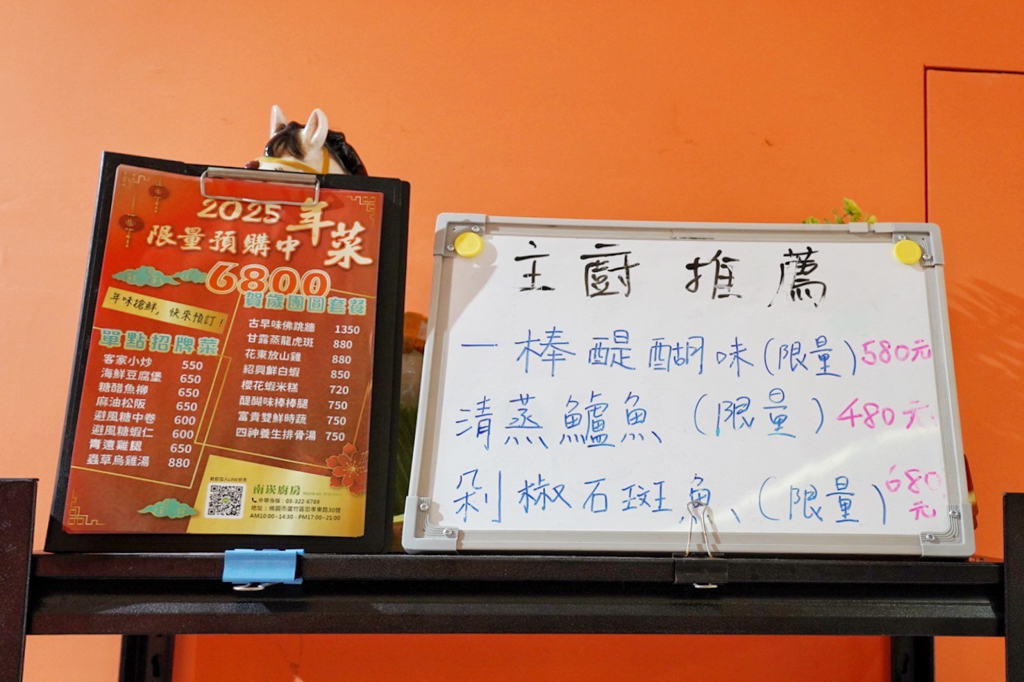 2025 年菜
限量預購中
6800
賀歲團圓套餐
年味搶鮮，快來預訂！
單點招牌菜
客家小炒 550
海鮮豆腐堡 650
糖醋魚柳 650
麻油松阪 650
避風糖中卷 600
避風糖蝦仁 600
青邊雞腿 650
蟲草烏雞湯 880
古早味佛跳牆 1350
甘露蒸龍虎斑 880
花東放山雞 880
紹興鮮白蝦 850
櫻花蝦米糕 720
醍醐味棒棒腿 750
富貴雙鮮時蔬 750
四神養生排骨湯 750
南崁廚房
03-322-6789
地址：桃園市蘆竹區忠孝東路30號
AM10:00-14:30、PM17:00-21:00
主廚推薦
一棒醍醐味(限量)580元
清蒸鱸魚(限量)480元
剁椒石斑魚(限量)680元